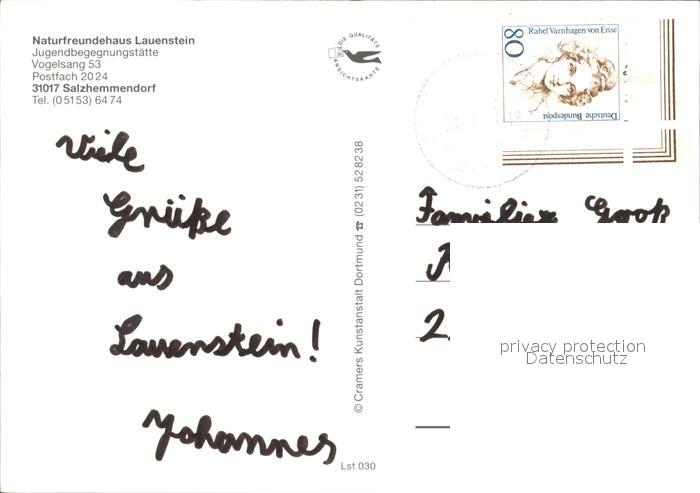 Naturfreundehaus Lauenstein
Jugendbegegnungstätte
Vogelsang 53
Postfach 20 24
31017 Salzhemmendorf
Tel. (0 51 53) 64 74
DIE QUALITÄTS
ANSICHTSKARTE
80
Rahel Varnhagen von Ense
Deutsche Bundespost
Viele
Grüße
aus
Lauenstein!
Johannes
© Cramers Kunstanstalt Dortmund ☎ (02 31) 52 82 38
Lst 030
Familie
2
privacy protection
Datenschutz